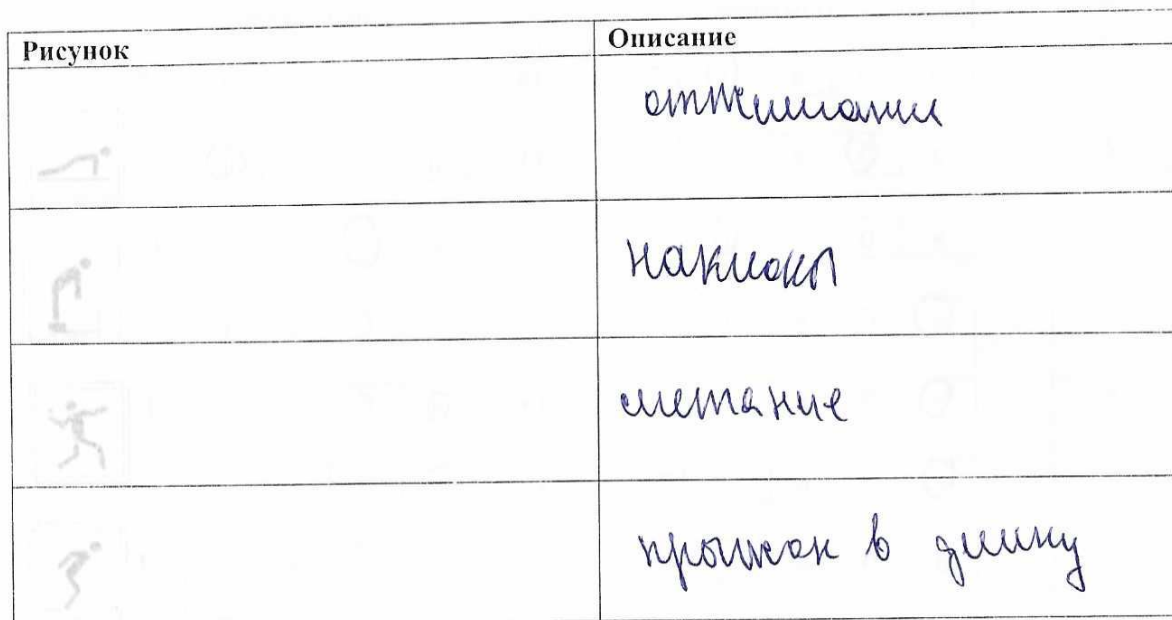 Рисунок Описание
отжимания
наклоны
метание
прыжок в длину